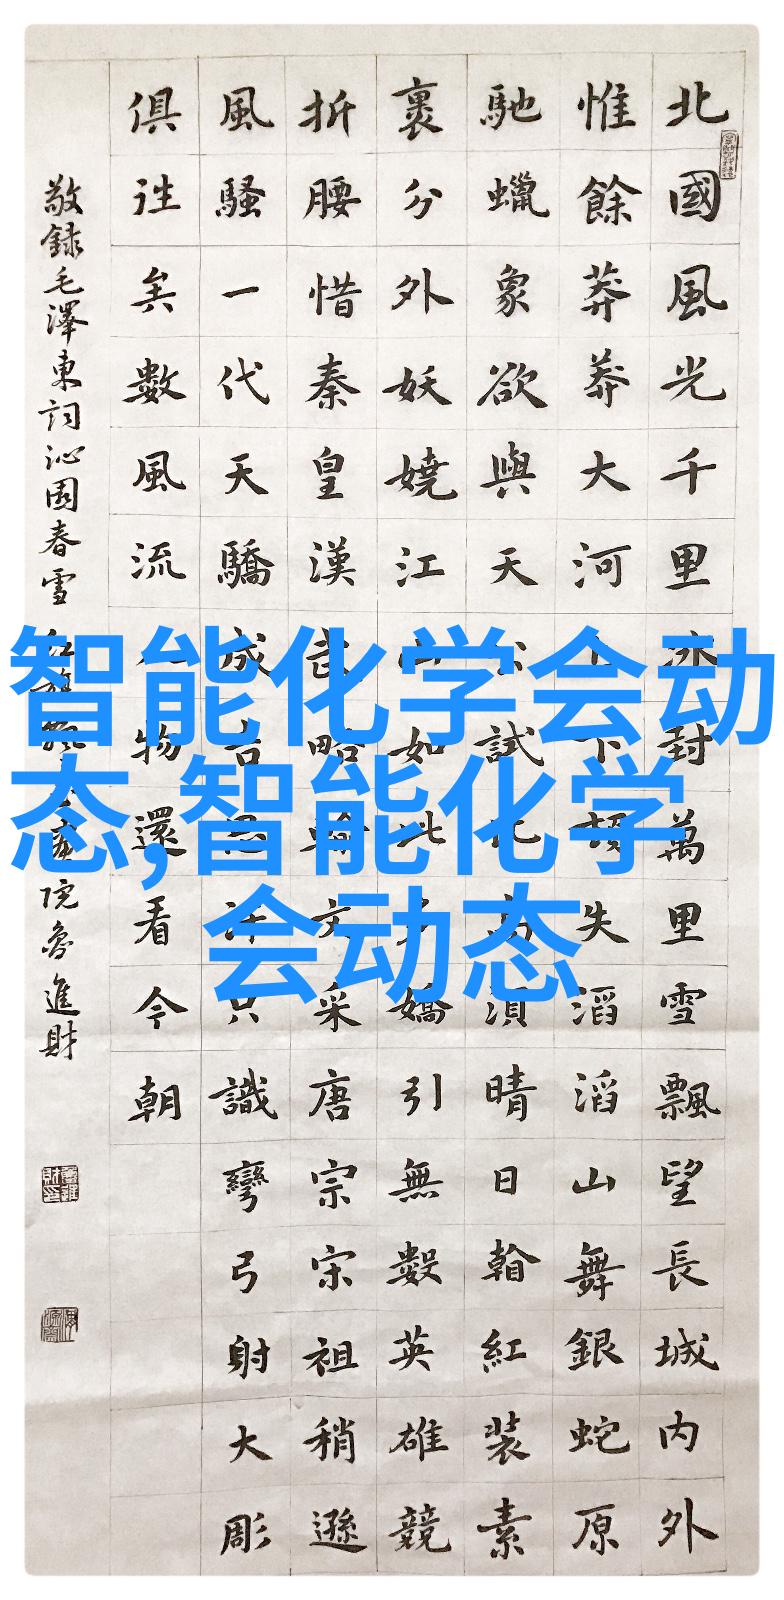 智能化学会动
态,智能化学
会动态
北國風光千里冰封萬里雪飄望長城內外
惟餘莽莽大河上下頓失滔滔山舞銀蛇原
馳蠟象欲與天公試比高須晴日翰紅裝素
裹分外妖嬈江山如此多嬌引無數英雄競
折腰惜秦皇漢武略輸文采唐宗宋祖稍遜
風騷一代天驕成吉思汗只識彎弓射大彫
俱往矣數風流人物還看今朝
敬録毛澤東詞沁園春雪 紅旗 院魯進財